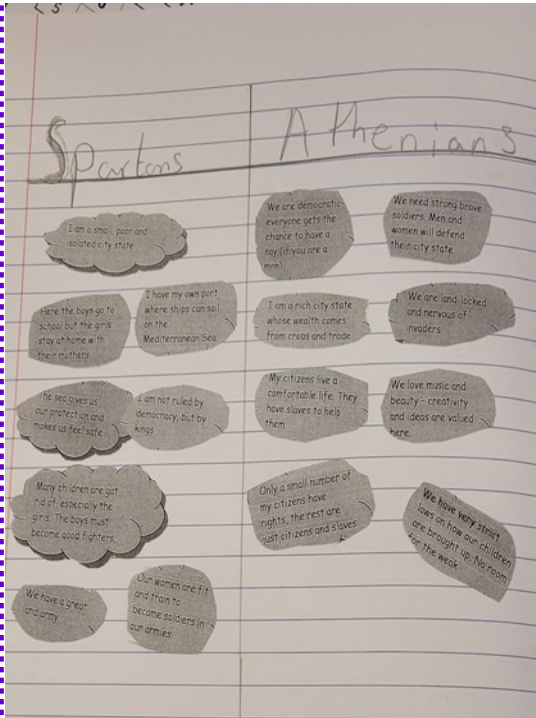 Spartans
Athenians
I am a small, poor and
isolated city state
Here the boys go to
school but the girls
stay at home with
their mothers
I have my own port
where ships can sail
on the
Mediterranean Sea
The sea gives us
our protection and
makes us feel safe
I am not ruled by
democracy, but by
kings
Many children are got
rid of, especially the
girls. The boys must
become good fighters.
We have a great
land army
Our women are fit
and train to
become soldiers in
our armies
We are democratic-
everyone gets the
chance to have a
say (if you are a
man)
We need strong brave
soldiers. Men and
women will defend
their city state
I am a rich city state
whose wealth comes
from crops and trade
We are land locked
and nervous of
invaders
My citizens live a
comfortable life. They
have slaves to help
them
We love music and
beauty – creativity
and ideas are valued
here.
Only a small number of
my citizens have
rights, the rest are
just citizens and slaves
We have very strict
laws on how our children
are brought up. No room
for the weak